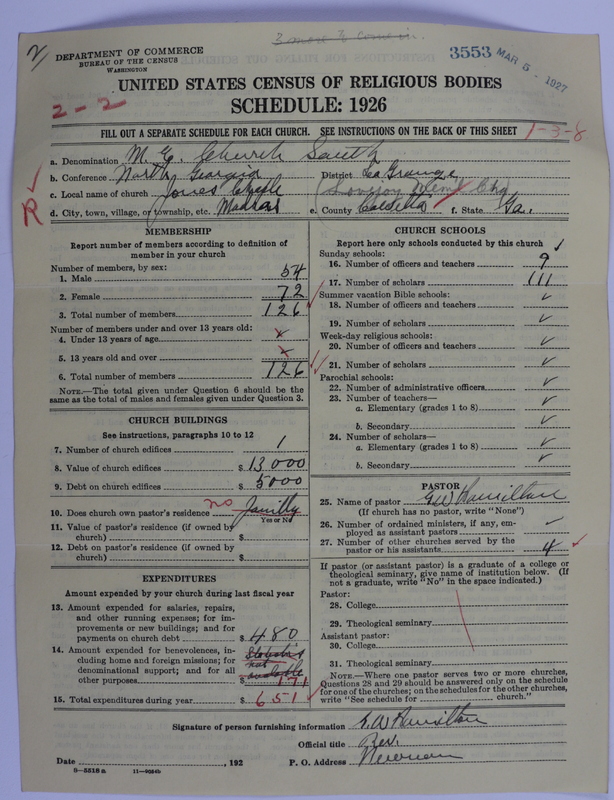 3 more to come in.
2
DEPARTMENT OF COMMERCE
BUREAU OF THE CENSUS
WASHINGTON
3553 MAR 5 - 1927
UNITED STATES CENSUS OF RELIGIOUS BODIES
2-2
SCHEDULE: 1926
FILL OUT A SEPARATE SCHEDULE FOR EACH CHURCH. SEE INSTRUCTIONS ON THE BACK OF THIS SHEET
1-3-8
a. Denomination M. E. Church South
b. Conference North Georgia District La Grange
c. Local name of church Jones Lovejoy Meml Chg
R
d. City, town, village, or township, etc. Madras e. County f. State Ga.
MEMBERSHIP
Report number of members according to definition of
member in your church
Number of members, by sex:
1. Male 54
2. Female 72
3. Total number of members 126
Number of members under and over 13 years old:
4. Under 13 years of age x
5. 13 years old and over x
6. Total number of members 126
NOTE.—The total given under Question 6 should be the
same as the total of males and females given under Question 3.
CHURCH BUILDINGS
See instructions, paragraphs 10 to 12
7. Number of church edifices 1
8. Value of church edifices $ 13000
9. Debt on church edifices $ 5000
10. Does church own pastor's residence no
Yes or No
11. Value of pastor's residence (if owned by
church) $
12. Debt on pastor's residence (if owned by
church) $
EXPENDITURES
Amount expended by your church during last fiscal year
13. Amount expended for salaries, repairs,
and other running expenses; for im-
provements or new buildings; and for
payments on church debt $ 480
14. Amount expended for benevolences, in-
cluding home and foreign missions; for
denominational support; and for all
other purposes not available $ 171
15. Total expenditures during year $ 651
CHURCH SCHOOLS
Report here only schools conducted by this church ✓
Sunday schools:
16. Number of officers and teachers 9
17. Number of scholars 111
Summer vacation Bible schools:
18. Number of officers and teachers ✓
19. Number of scholars ✓
Week-day religious schools:
20. Number of officers and teachers ✓
21. Number of scholars ✓
Parochial schools:
22. Number of administrative officers ✓
23. Number of teachers—
a. Elementary (grades 1 to 8) ✓
b. Secondary ✓
24. Number of scholars—
a. Elementary (grades 1 to 8) ✓
b. Secondary ✓
PASTOR
25. Name of pastor G W Hamilton
(If church has no pastor, write "None")
26. Number of ordained ministers, if any, em-
ployed as assistant pastors
27. Number of other churches served by the
pastor or his assistants 4
If pastor (or assistant pastor) is a graduate of a college or
theological seminary, give name of institution below. (If
not a graduate, write "No" in the space indicated.)
Pastor:
28. College
29. Theological seminary
Assistant pastor:
30. College
31. Theological seminary
NOTE.—Where one pastor serves two or more churches,
Questions 28 and 29 should be answered only on the schedule
for one of the churches; on the schedules for the other churches,
write "See schedule for church."
Signature of person furnishing information G. W Hamilton
Official title Rev.
Date , 192 P. O. Address Newnan
8—5518 a 11—9034b